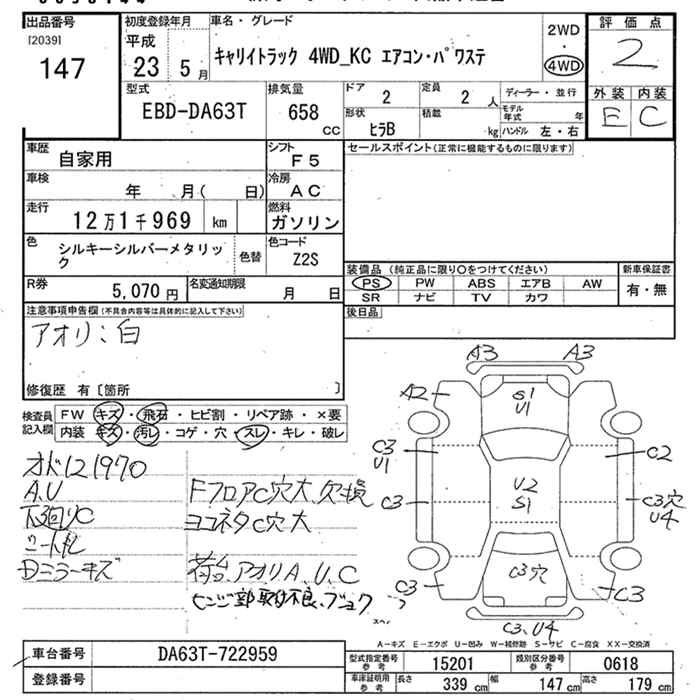 出品番号
[2039]
147
初度登録年月
平成
23 5 月
車名・グレード
キャリイトラック 4WD_KC エアコン・パワステ
2WD
・
4WD
評価点
2
外装 内装
E C
型式
EBD-DA63T
排気量
658
CC
ドア
2
定員
2 人
ディーラー・並行
形状
ヒラB
積載
kg
モデル年式 年
ハンドル 左・右
車歴
自家用
シフト
F5
セールスポイント(正常に機能するものに限ります)
車検
年 月( 日)
冷房
AC
走行
12万1千969 km
燃料
ガソリン
色
シルキーシルバーメタリック
色替
色コード
Z2S
装備品 (純正品に限り〇をつけてください)
新車保証書
PS PW ABS エアB AW
有・無
SR ナビ TV カワ
R券
5,070 円
名変通知期限
月 日
後日品
注意事項申告欄(不具合内容等は具体的に記入して下さい)
アオリ:白
修復歴 有〔箇所 〕
検査員
記入欄
FW キズ・飛石・ヒビ割・リペア跡・×要
内装 キズ・汚レ・コゲ・穴・スレ・キレ・破レ
オドメ121970
A.U
下廻りC
シート
Dミラーキズ
FフロアC穴大、欠損
ヨコネタC穴大
荷台、アオリA.U.C
ヒンジ部取付不良、
A3 A3
A2
S1
U1
C3
U1
C2
C3
U2
S1
C3穴
U4
C3穴
C3
C3
C3、U4
A－キズ E－エクボ U－凹み W－補修跡 S－サビ C－腐食 XX－交換済
車台番号
DA63T-722959
登録番号
型式指定番号
参考
15201
類別区分番号
参考
0618
車庫証明用
参考
長さ
339 cm
幅
147 cm
高さ
179 cm